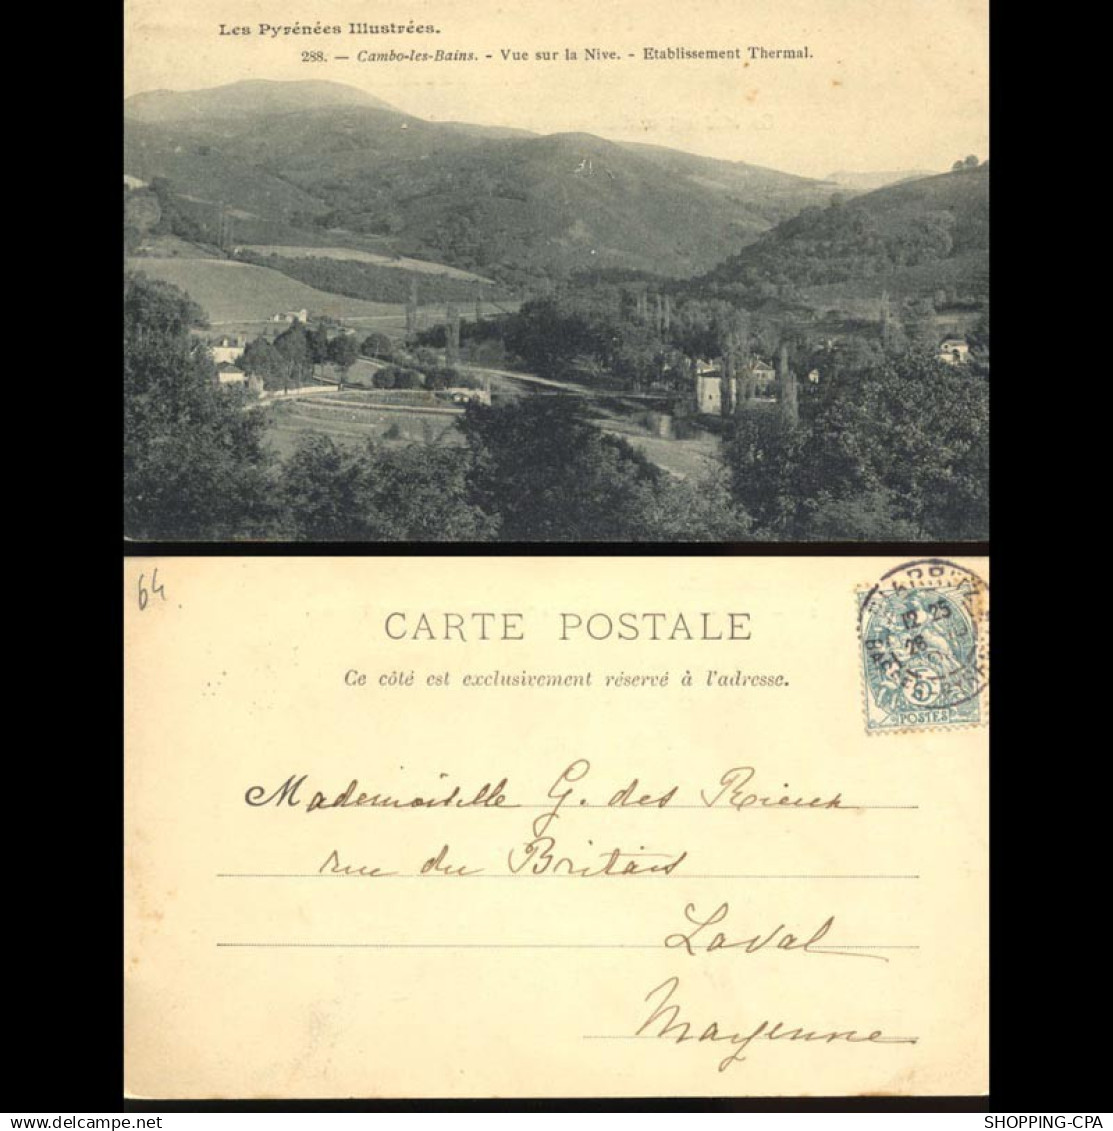 Les Pyrénées Illustrées.
288. — Cambo-les-Bains. - Vue sur la Nive. - Etablissement Thermal.
64
CARTE POSTALE
Ce côté est exclusivement réservé à l'adresse.
BIARRITZ
12 25
26
BASSES
5
POSTES
Mademoiselle G. des Rieux
rue du Britais
Laval
Mayenne
SHOPPING-CPA